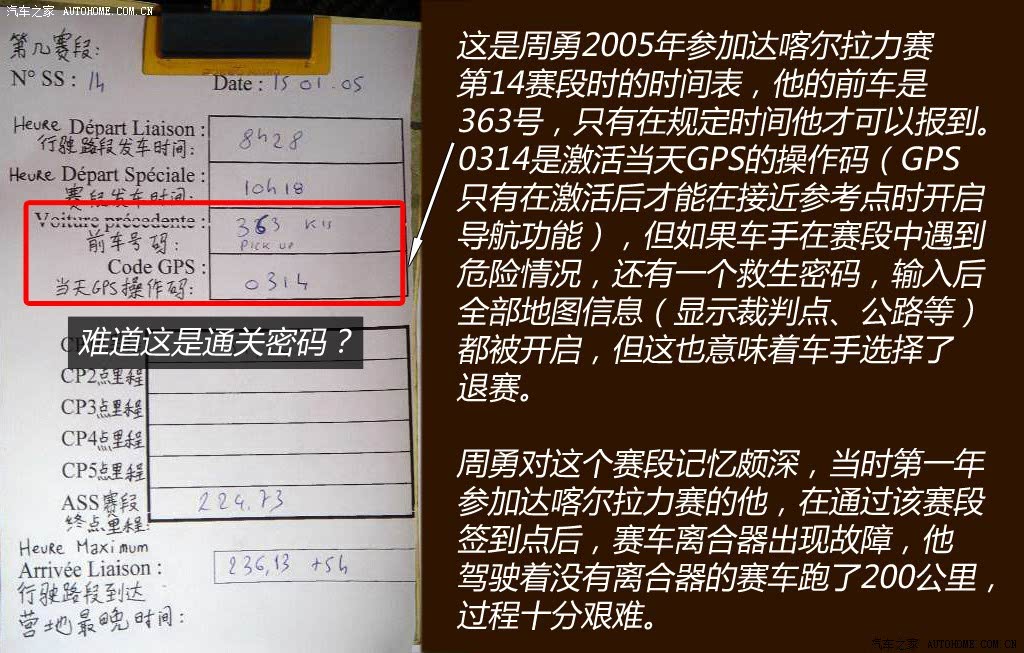 汽车之家 AUTOHOME.COM.CN
第几赛段:
N° SS : 14
Date : 15 01.05
Heure Départ Liaison :
行驶路段发车时间:
8h28
Heure Départ Spéciale :
赛段发车时间:
10h18
Voiture précedente :
前车号码:
363
PICK UP
Code GPS :
当天GPS操作码:
0314
难道这是通关密码？
CP2点里程
CP3点里程
CP4点里程
CP5点里程
ASS赛段
终点里程:
224,73
Heure Maximum
Arrivée Liaison :
行驶路段到达
营地最晚时间:
236,13 +5h
这是周勇2005年参加达喀尔拉力赛
第14赛段时的时间表，他的前车是
363号，只有在规定时间他才可以报到。
0314是激活当天GPS的操作码（GPS
只有在激活后才能在接近参考点时开启
导航功能），但如果车手在赛段中遇到
危险情况，还有一个救生密码，输入后
全部地图信息（显示裁判点、公路等）
都被开启，但这也意味着车手选择了
退赛。
周勇对这个赛段记忆颇深，当时第一年
参加达喀尔拉力赛的他，在通过该赛段
签到点后，赛车离合器出现故障，他
驾驶着没有离合器的赛车跑了200公里，
过程十分艰难。
汽车之家 AUTOHOME.COM.CN